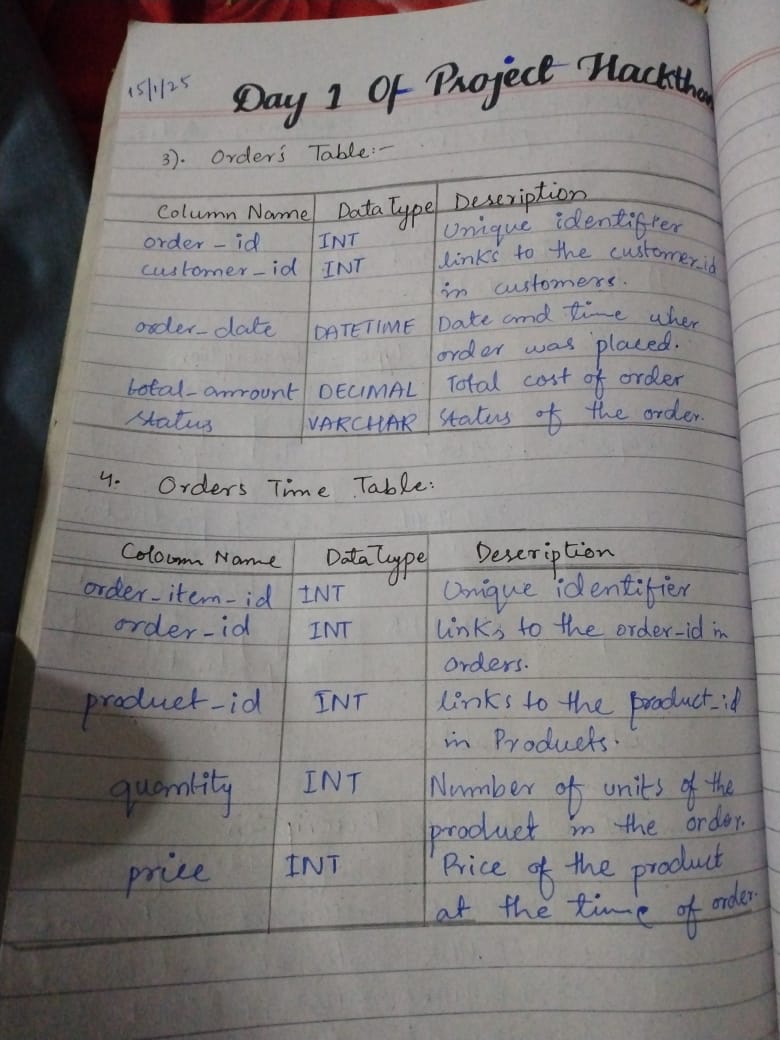 15/1/25
Day 1 Of Project Hackthon
3). Order's Table:-
Column Name Data Type Description
order-id INT Unique identifier
customer-id INT links to the customer-id
in customers.
order-date DATETIME Date and time when
order was placed.
total-amount DECIMAL Total cost of order
status VARCHAR status of the order.
4. Orders Time Table:
Coloumn Name Data Type Description
order-item-id INT Unique identifier
order-id INT links to the order-id in
orders.
product-id INT links to the product-id
in Products.
quantity INT Number of units of the
product in the order.
price INT Price of the product
at the time of order.